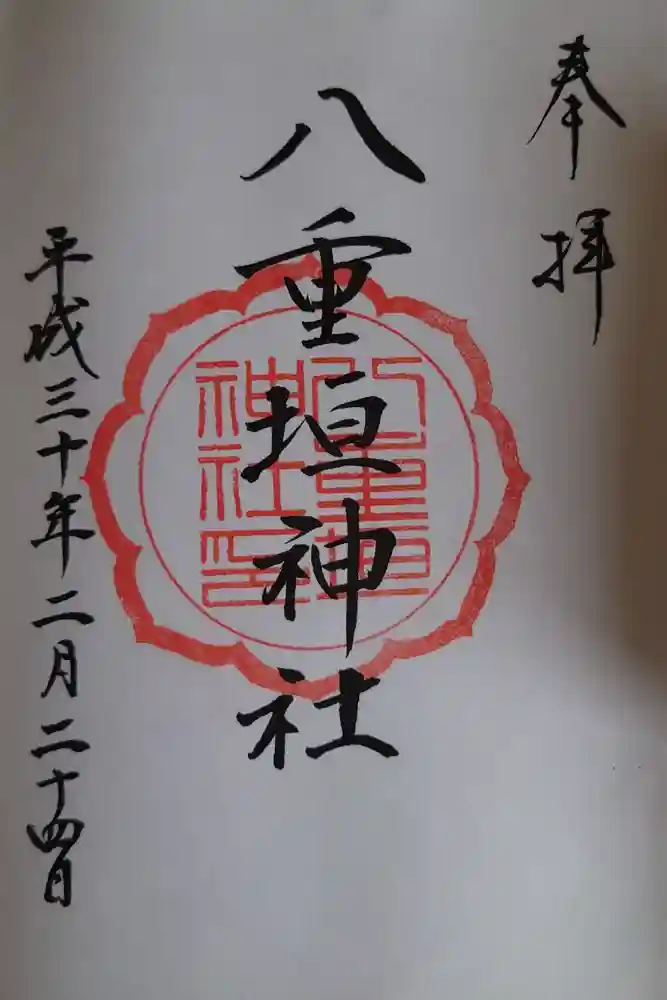 奉拝
八重垣神社
八重垣神社印
平成三十年二月二十四日